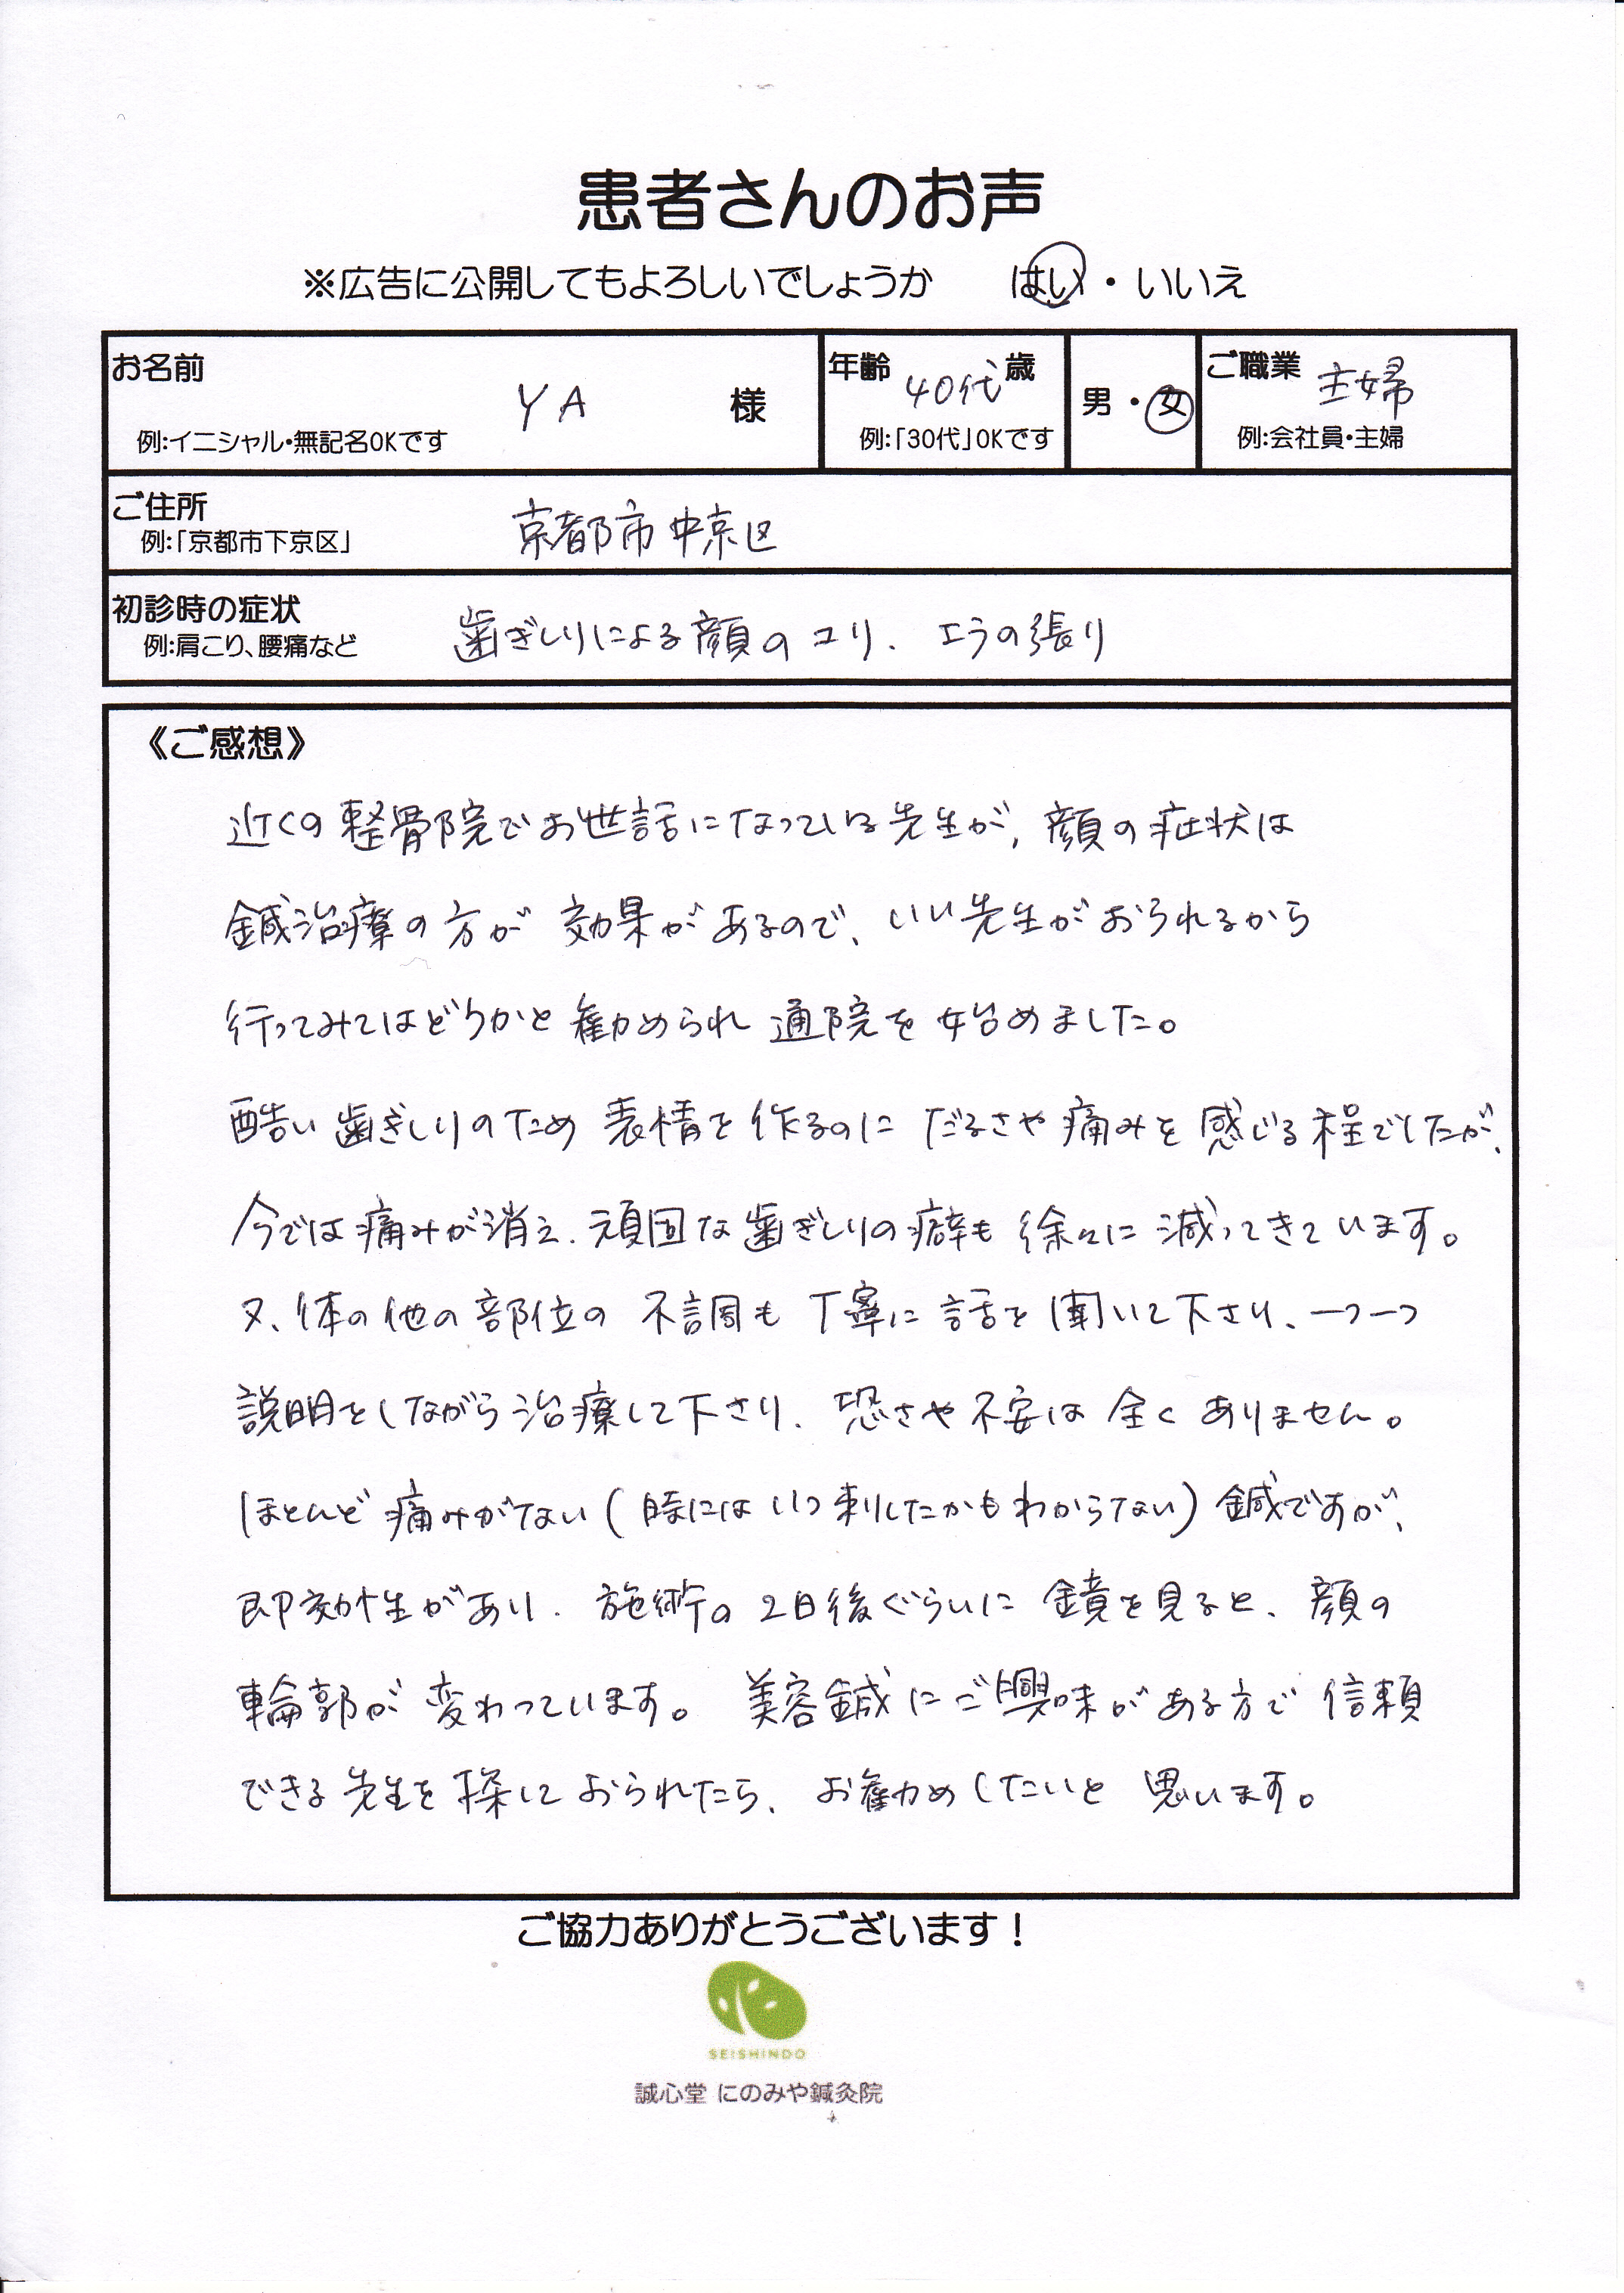 患者さんのお声
※広告に公開してもよろしいでしょうか　はい・いいえ
お名前　YA　様
例:イニシャル・無記名OKです
年齢　40代　歳
例:「30代」OKです
男・女
ご職業　主婦
例:会社員・主婦
ご住所　京都市中京区
例:「京都市下京区」
初診時の症状　歯ぎしりによる顔のコリ、エラの張り
例:肩こり、腰痛など
《ご感想》
近くの整骨院でお世話になっている先生が、顔の症状は
鍼治療の方が効果があるので、いい先生がおられるから
行ってみてはどうかと勧められ通院を始めました。
酷い歯ぎしりのため表情を作るのにだるさや痛みを感じる程でしたが、
今では痛みが消え、頑固な歯ぎしりの癖も徐々に減ってきています。
又、体の他の部位の不調も丁寧に話を聞いて下さり、一つ一つ
説明をしながら治療して下さり、恐さや不安は全くありません。
ほとんど痛みがない(時にはいつ刺したかもわからない)鍼ですが、
即効性があり、施術の2日後ぐらいに鏡を見ると、顔の
輪郭が変わっています。美容鍼にご興味がある方で信頼
できる先生を探しておられたら、お勧めしたいと思います。
ご協力ありがとうございます！
SEISHINDO
誠心堂 にのみや鍼灸院